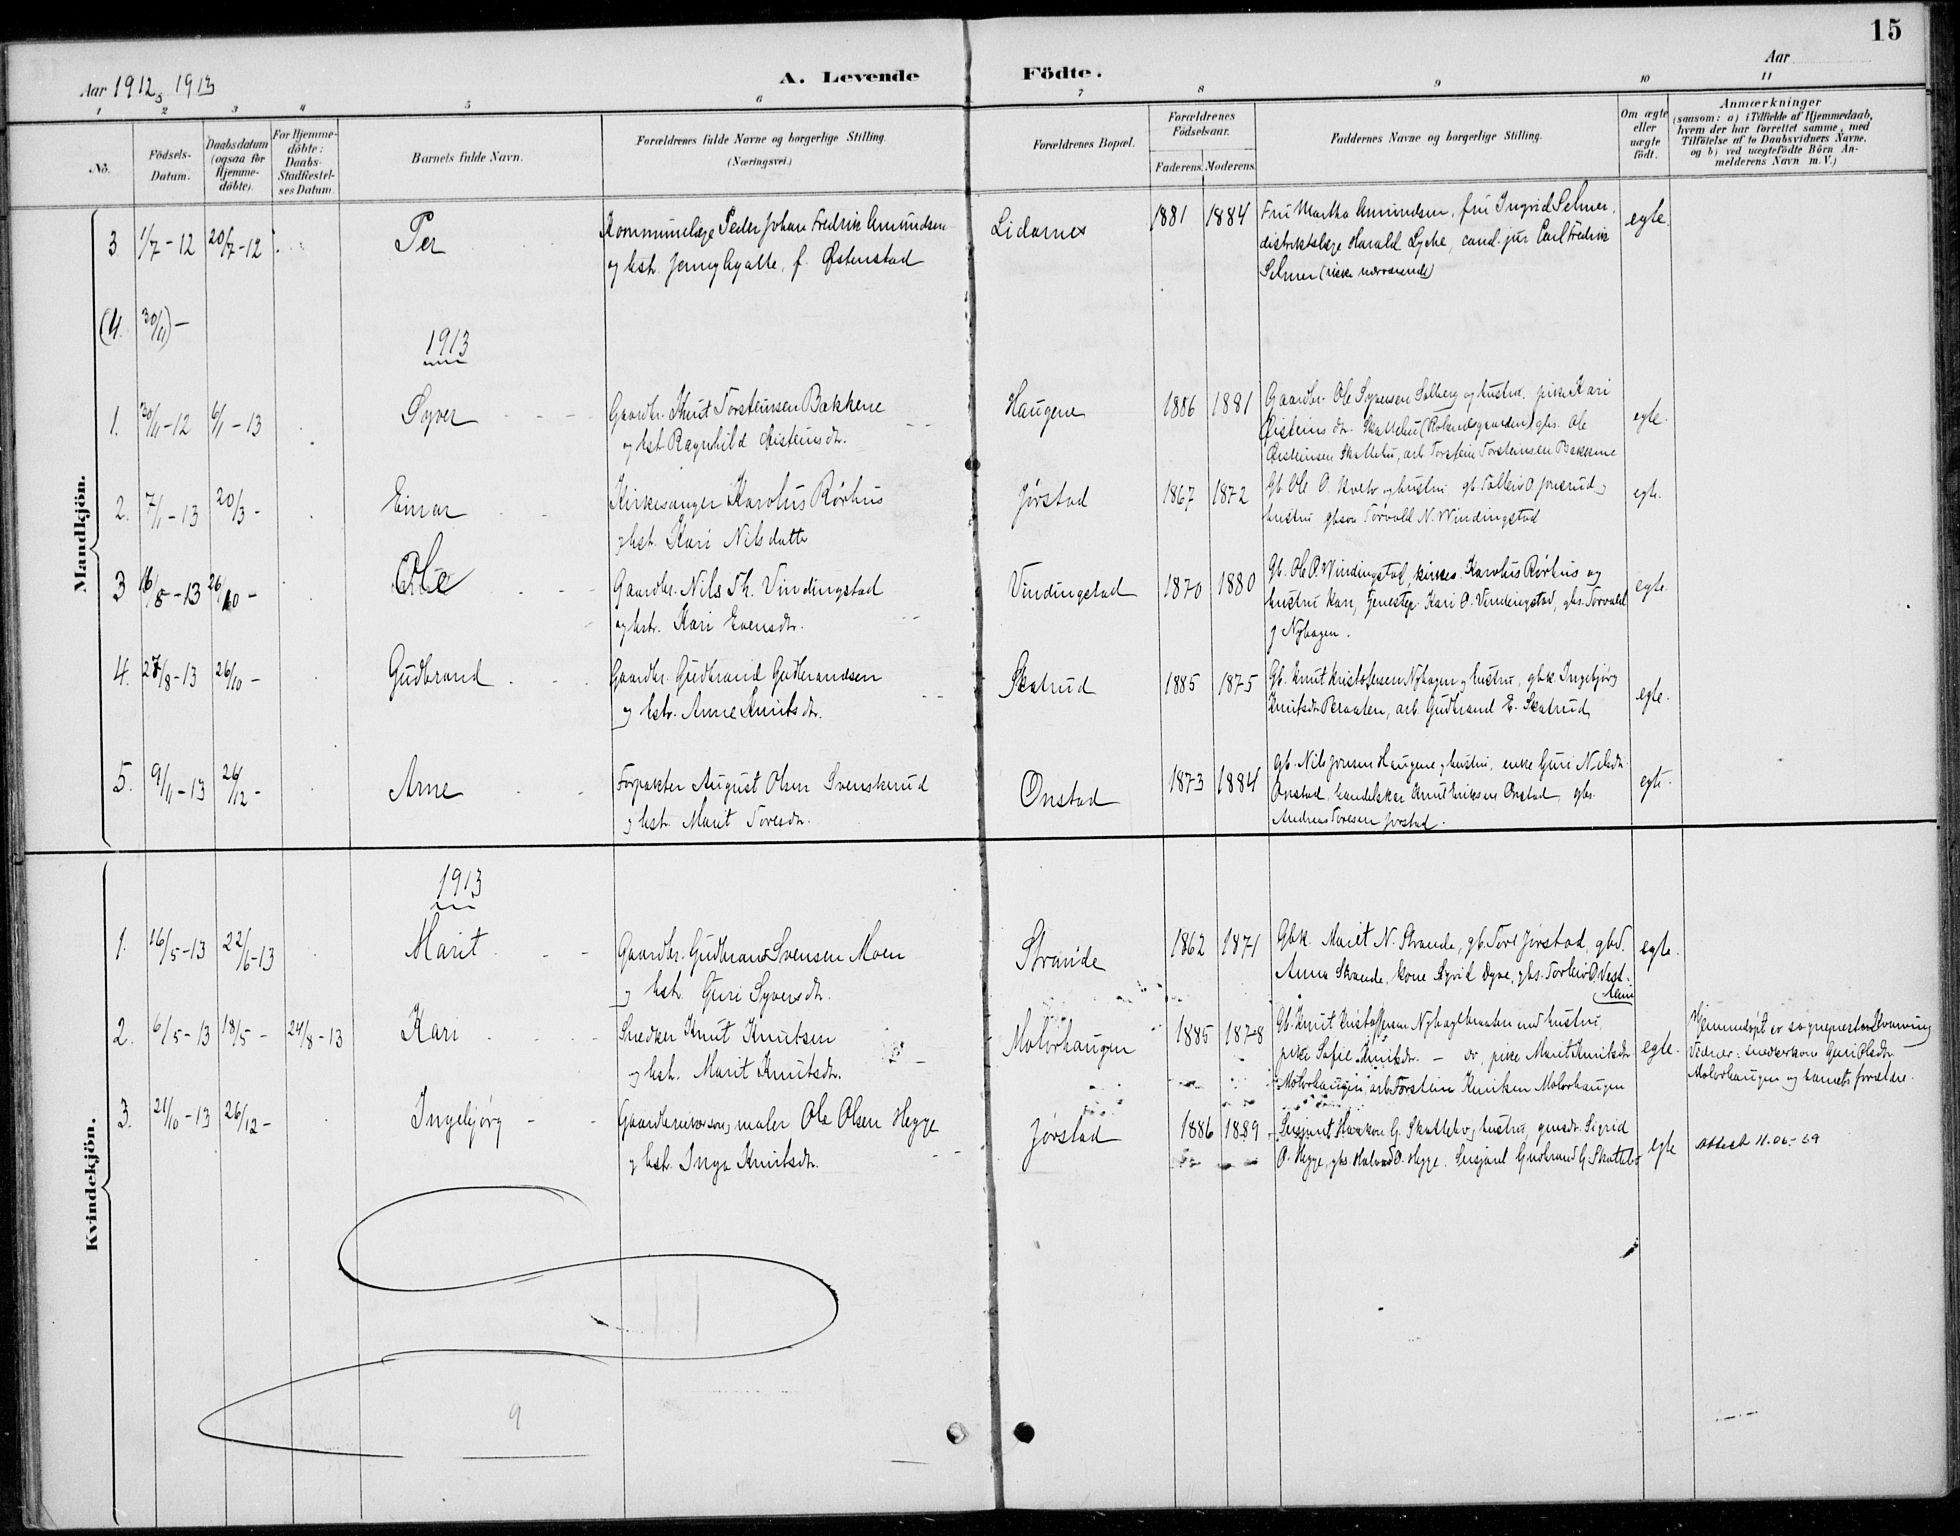 15
Aar 1912, 1913
A. Levende
Födte.
Aar
1 2 3 4 5 6 7 8 9 10 11
Nö.
Födsels-
Datum.
Daabsdatum
(ogsaa for
Hjemme-
döbte).
For Hjemme-
döbte:
Daabs-
Stadfæstel-
ses Datum.
Barnets fulde Navn.
Forældrenes fulde Navne og borgerlige Stilling.
(Næringsvei.)
Forældrenes Bopæl.
Forældrenes
Födselsaar.
Faderens. Moderens.
Faddernes Navne og borgerlige Stilling.
Om ægte
eller
uægte
födt.
Anmærkninger
(saasom: a) i Tilfælde af Hjemmedaab,
hvem der har forrettet samme, med
Tilföielse af to Daabsvidners Navne,
og b) ved uægtefödte Börn An-
melderens Navn m. V.)
Mandkjön.
3 1/7-12 20/7-12 Per
Kommunelæge Peder Johan Fredrik Amundsen
og hstr. Jenny Agatte, f. Østenstad
Lidarnes 1881 1884
Fru Martha Amundsen, fru Ingrid Selmer,
distriktslæge Harald Lyche, cand. jur Carl Fredrik
Selmer (ikke nærværende)
egte.
(4. 30/11)-
1913
1. 30/11-12 6/1-13 Syver
Gaardbr. Knut Torsteinsen Bakkene
og hstr. Ragnhild Øisteinsdtr.
Haugene 1886 1881
Gaardbr. Ole Syversen Solberg og hustru, pike Kari
Øisteinsdtr. Skattebu gbs. Ole
Øisteinsen Skattebu, arb. Torstein Torsteinsen Bakkene
egte.
2. 7/1-13 20/3- Einar
Kirkesanger Karolus Rørhus
og hst. Kari Nilsdatter
Jørstad 1867 1872
Gb. Ole O. Kvale og hustru gb. Tolleiv O. Jonsrud og
hustru gbsøn Torvald N. Windingstad
egte.
3 16/5-13 26/10- Ole
Gaardbr. Nils Th. Vindingstad
og hstr. Kari Evensdtr.
Vindingstad 1870 1880
Gb. Ole P. Windingstad, kirkes. Karolus Rørhus og
hustru Kari, tjenestep. Kari O. Vindingstad, gbs. Torvald
J Nyhagen.
egte.
4. 27/8-13 26/10- Gudbrand
Gaardbr. Gudbrand Gudbrandsen
og hstr. Anne Knutsdtr.
Skatrud 1885 1875
Gb. Knut Kristofersen Nyhagen og hustru, gbk Ingebjørg
Knutsdtr Braaten, arb. Gudbrand E. Skatrud
egte.
5. 9/11-13 26/12- Arne
Forpakter August Olsen Svenskerud
og hst. Marit Toresdtr.
Onstad 1873 1884
gb. Nils Jonsen Haugene og hustru, enke Guri Nilsdtr
Onstad, handelskar Knut Eriksen Onstad, gbs.
Andreas Toresen Jørstad.
egte.
Kvindekjön.
1913
1. 16/5-13 22/6-13 Marit
Gaardbr. Gudbrand Svensen Moen
og hst. Guri Syversdtr.
Strande 1862 1871
Gbk. Marit N. Strande, gb. Tore Jørstad, gbd.
Anna Strande, kone Sigrid Øyne, gbs. Torleiv O Vest-
rheim
egte.
2. 6/5-13 18/5- 24/8-13 Kari
Snedker Knut Knutsen
og hst. Marit Knutsdtr.
Molvrhaugen 1885 1878
Gb. Knut Kristoffersen Nyhagebraaten med hustru,
pike Sofie Knutsdr. - pike Marit Knutsdtr
Molvrhaugen, arb Torstein Knutsen Molvrhaugen
egte.
Hjemmedøpt av sogneprest
Vidner: snedkerkone Guri Olsdtr.
Molvrhaugen og barnets forældre.
3. 21/10-13 26/12- Ingebjørg
maler Ole Olsen Hegge
og hst. Inga Knutsdtr.
Jørstad 1886 1889
Sersjant Haakon G. Skattebo og hustru, gaardtr. Sigrid
O. Hegge, gbs Halvard O. Hegge. Sersjant Gudbrand G. Skattebo
egte
attest 11.06-29
9